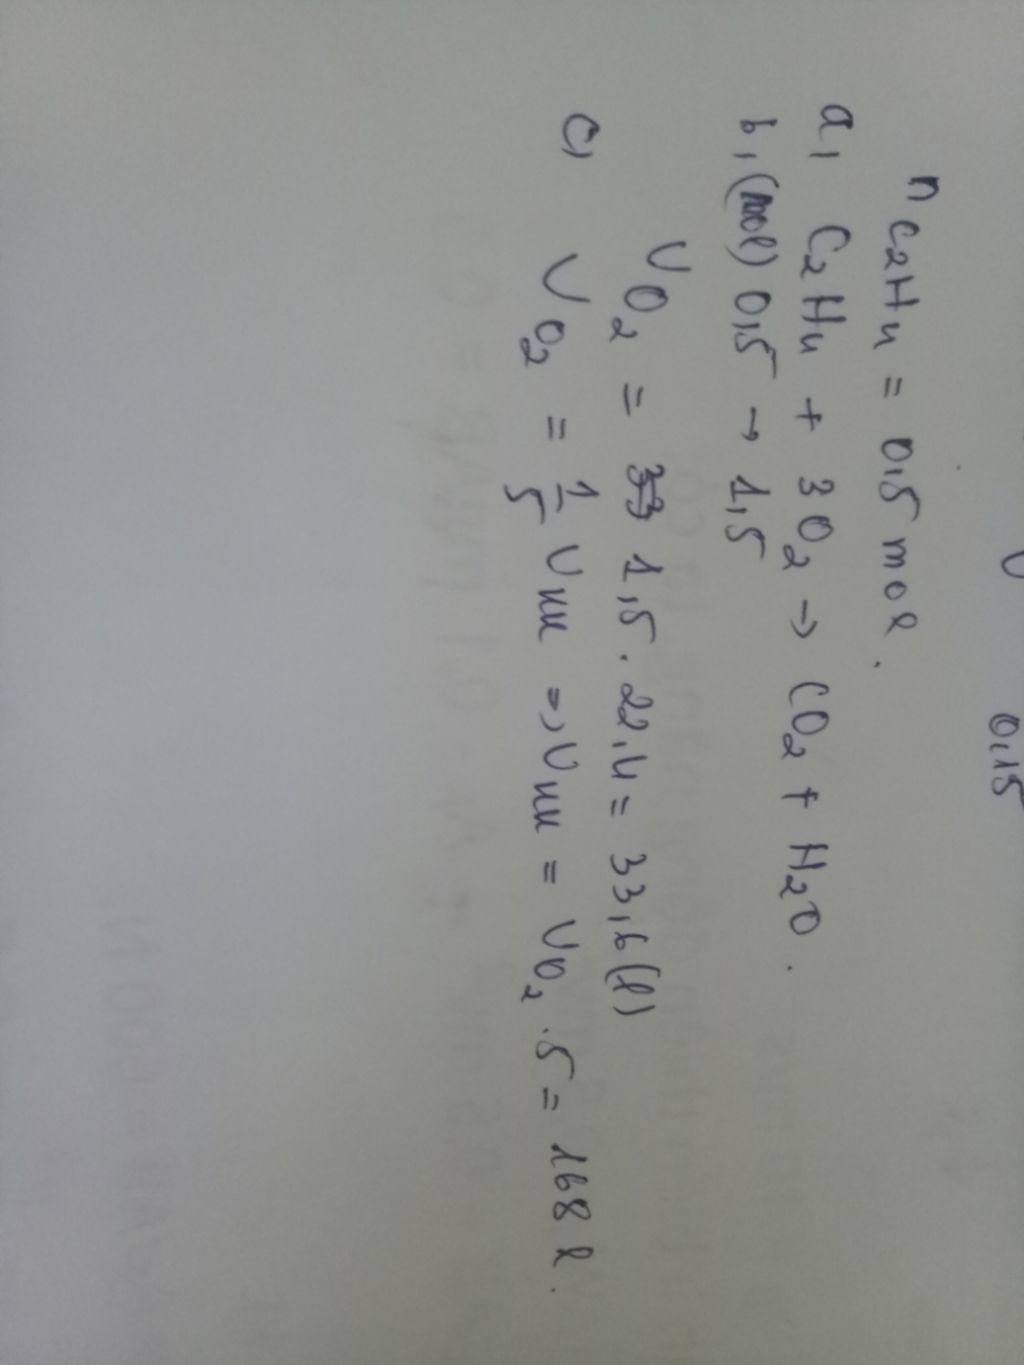 0,15
nC2H4 = 0,5 mol.
a, C2H4 + 3O2 → CO2 + H2O.
b, (mol) 0,5 → 1,5
VO2 = 1,5 . 22,4 = 33,6 (l)
c, VO2 = 1/5 Vkk => Vkk = VO2 . 5 = 168 l.